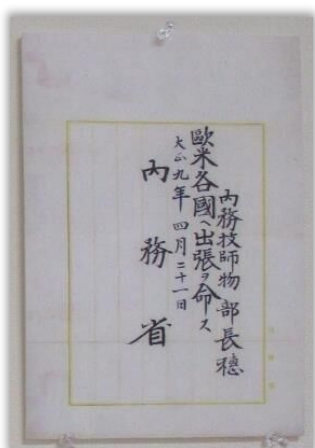 內務技師物部長穗
歐米各國ヘ出張ヲ命ス
大正九年四月二十一日
內務省